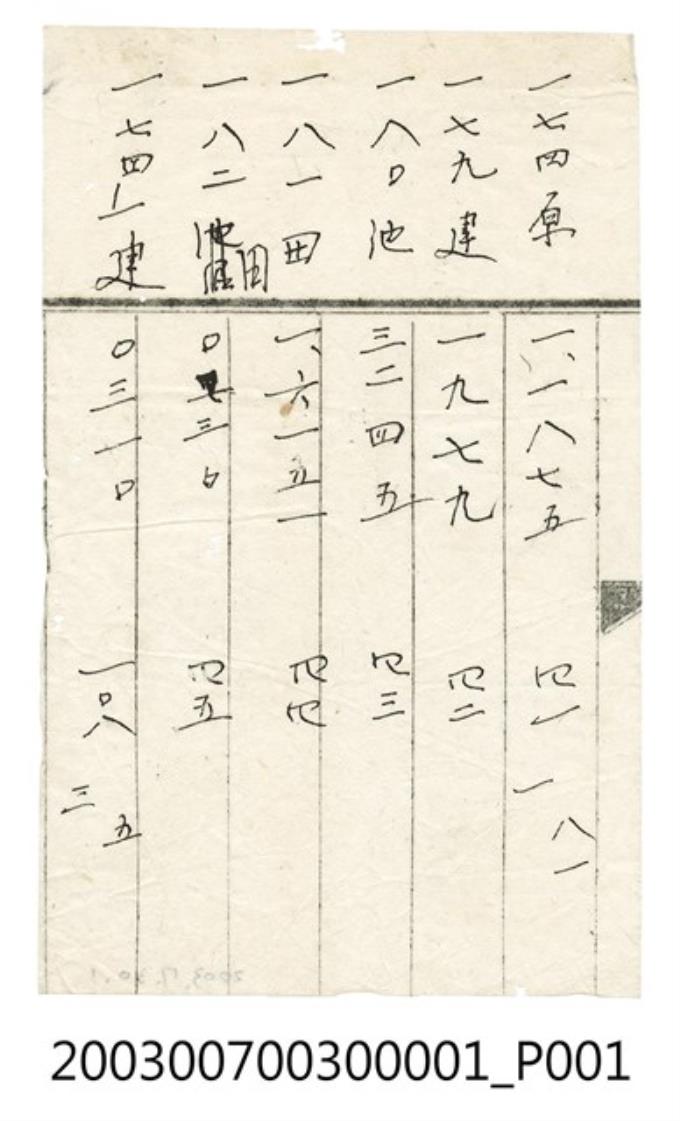 一七四原
一、一八七五
四一
一八一
一七九建
一九七九
四二
一八〇池
三二四五
四三
一八一田
一、六一五一
四四
一八二
田
〇
三〇
四五
一七四ノ一建
〇三一〇
一〇八
三五
200300700300001_P001